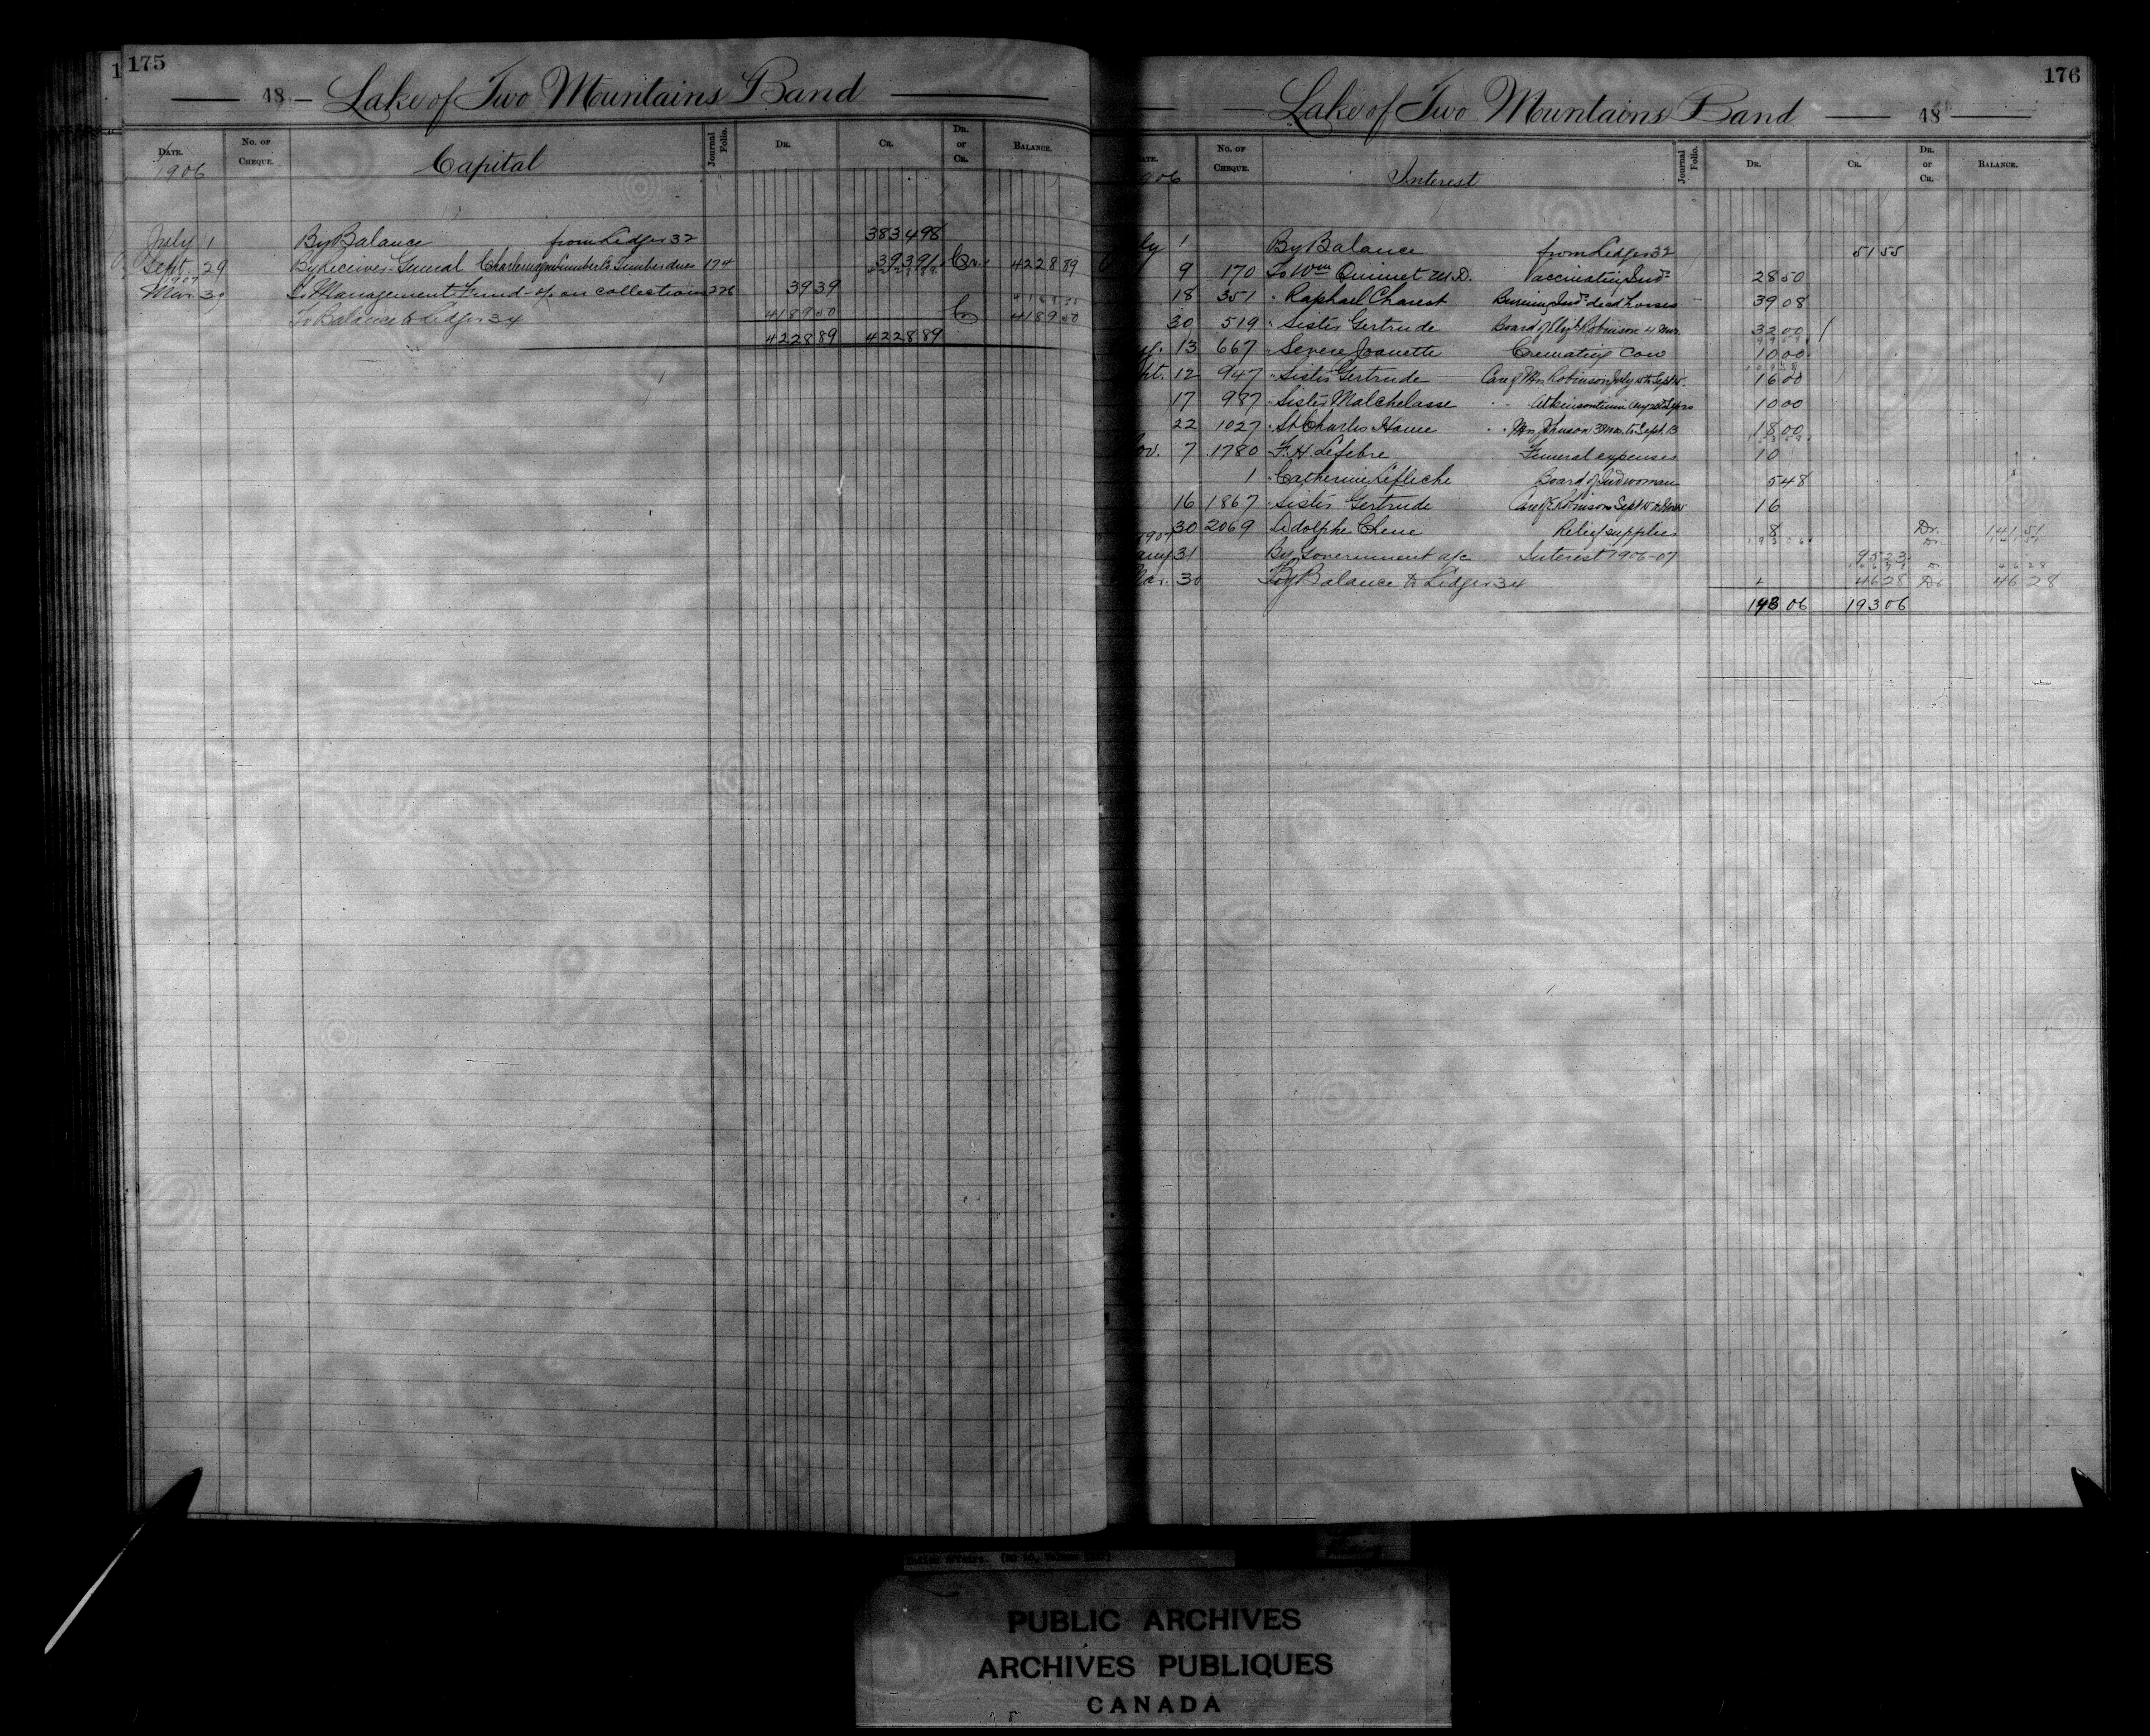 175
48 Lake of Two Mountains Band
Date. No. of Cheque. Capital Journal Folio. Dr. Cr. Dr. or Cr. Balance.
1906
July 1 By Balance from Ledger 32 3834 98
Sept. 29 By Receiver General Timber dues 174 393 91 Cr. 4228 89
1907
Mar. 30 To Management Fund - % on collections 226 39 39
To Balance to Ledger 34 4189 50 Cr 4189 50
4228 89 4228 89
176
Lake of Two Mountains Band 48
No. of Cheque. Interest Journal Folio. Dr. Cr. Dr. or Cr. Balance.
1 By Balance from Ledger 32 51 55
9 170 To Wm Quinnet M.D. Vaccinating Inds 28 50
18 351 " Raphael Charest Burning Inds dead horses 39 08
30 519 " Sister Gertrude Board of Robinson 4 mos. 32 00
13 667 " Severe Joanette Cremating cow 10 00
12 947 " Sister Gertrude Care of Robinson July to Sept 16 00
17 987 " Sister Malchelasse 10 00
22 1027 " St Charles Home " Johnson 3 mos. to Sept. 13 18 00
7 1780 F. H. Lefebre Funeral expenses 10
1 " Catherine Lefleche Board of Ind woman 5 48
16 1867 " Sister Gertrude Care of E Robinson Sept to Nov 16
30 2069 Adolphe Chene Relief supplies 8 Dr. 141 51
31 By Government a/c Interest 1906-07 95 23
Mar. 30 By Balance to Ledger 34 46 28 Dr 46 28
193 06 193 06
PUBLIC ARCHIVES
ARCHIVES PUBLIQUES
CANADA